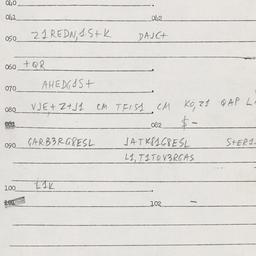 040
041 042
050 Z1REDN,1S+K DAJC+
060 +QR
070 AHEDG1S+
080 VJE+Z+J1 CM TFIS1 CM KO,Z1 QAP
082 $-
090 GARB3RG8ESL JATK81G8ESL S+ER1
L1,T1TOV3RGAS
100 L1K
102 -